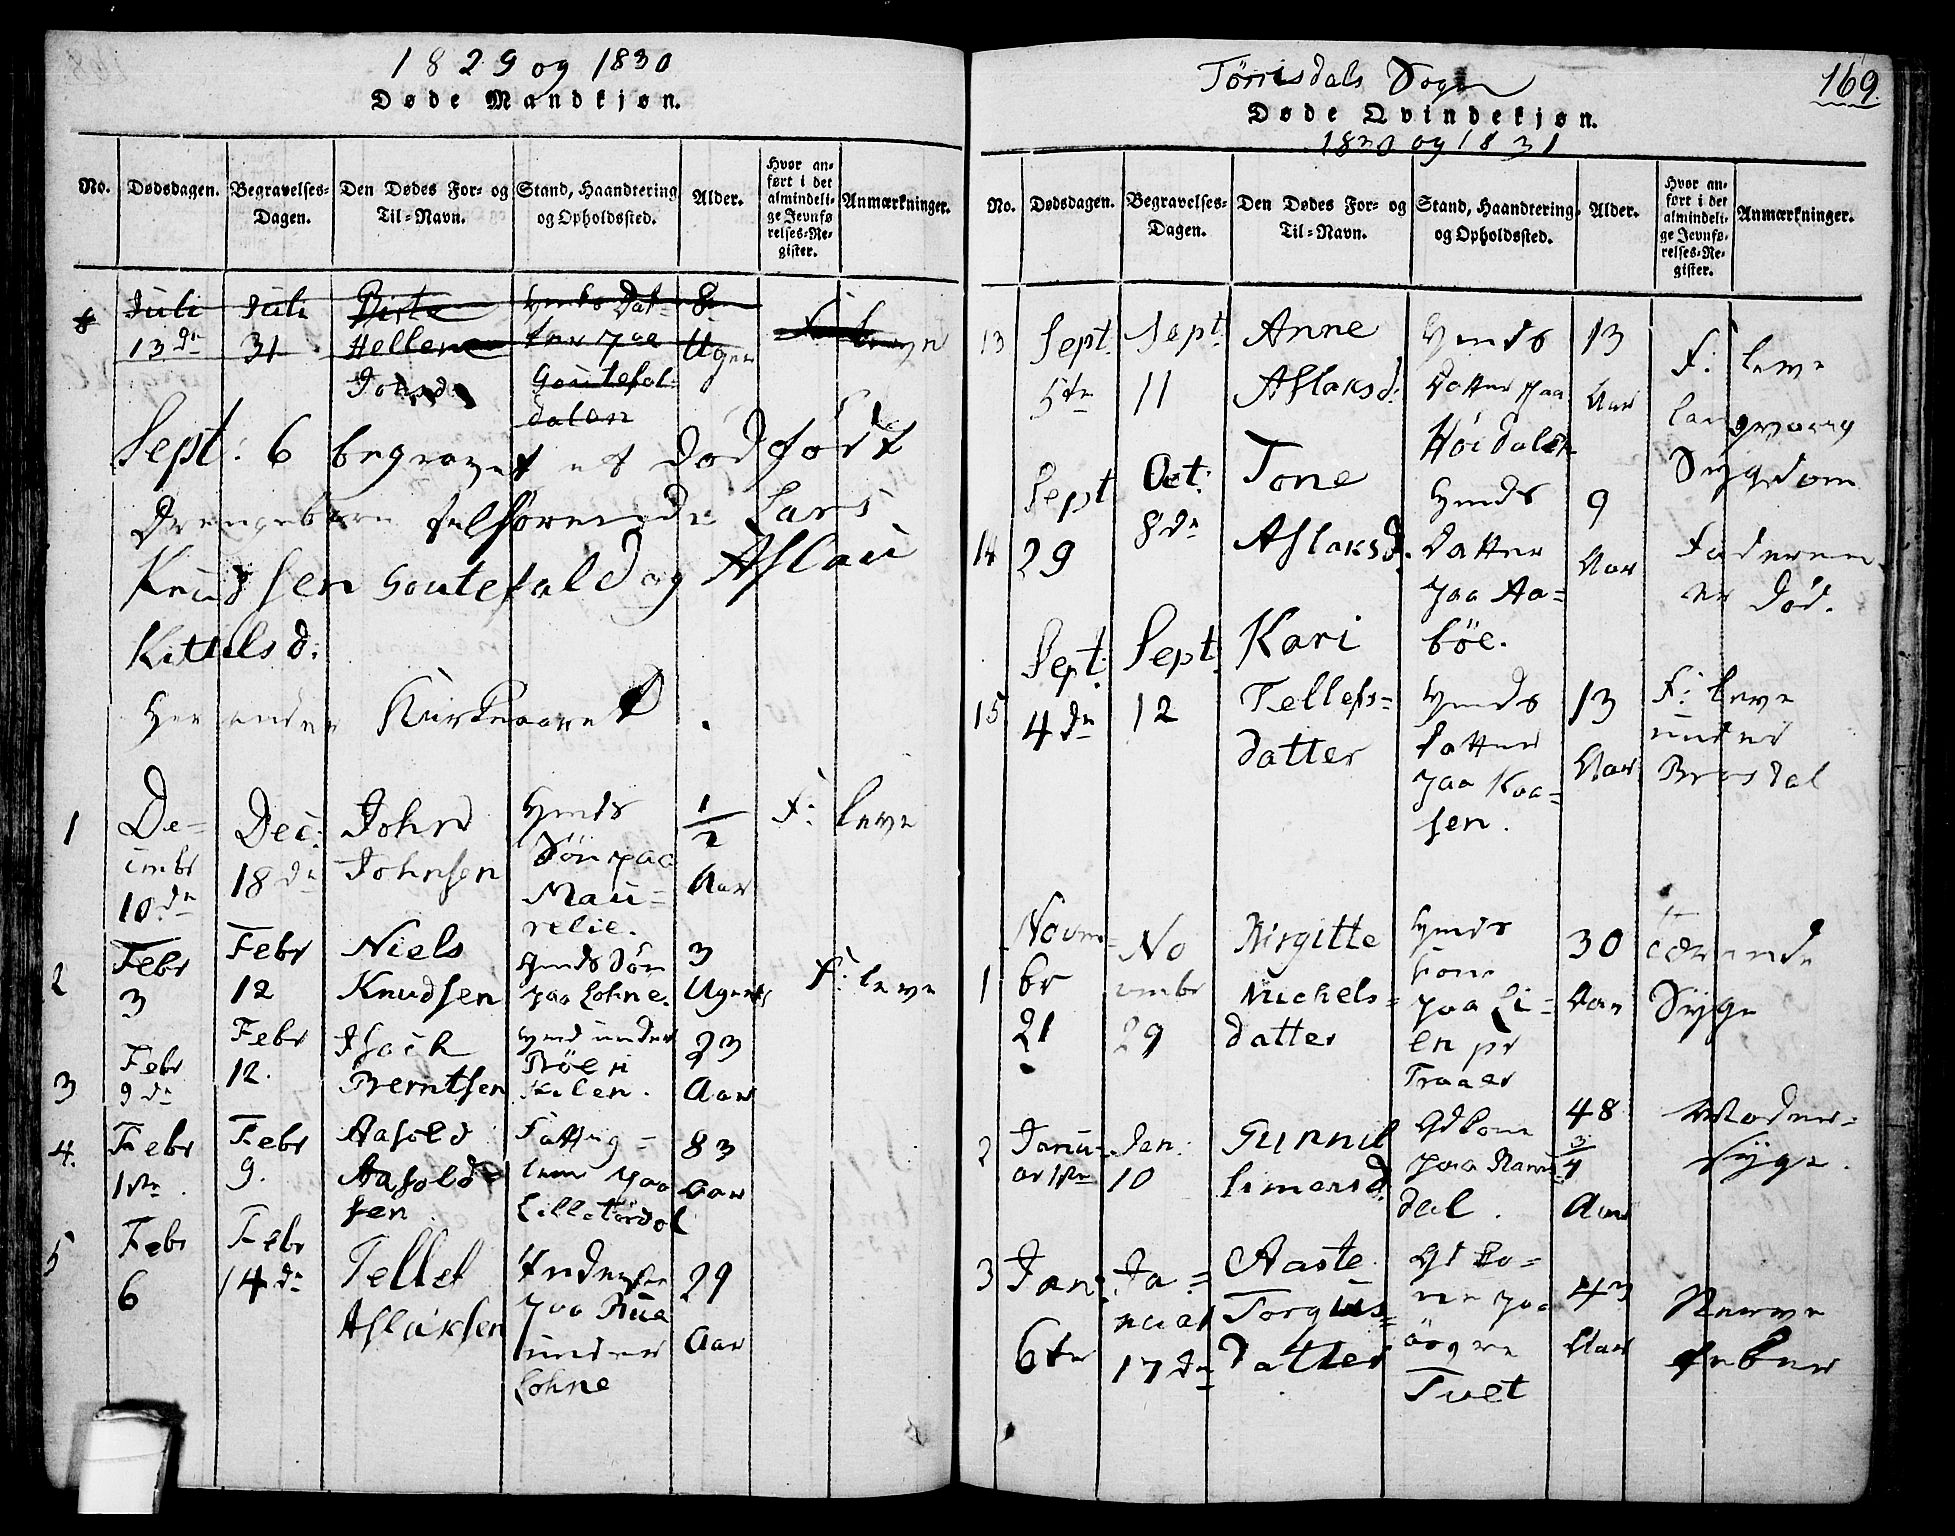 1829 og 1830
Døde Mandkjøn.
No.
Dødsdagen.
Begravelses-
Dagen.
Den Dødes For- og
Til-Navn.
Stand, Haandtering
og Opholdssted.
Alder.
Hvor an-
ført i det
almindeli-
ge Jevnfø
relses-Re-
gister.
Anmærkninger.
Juli
13 de
Juli
31
Hellene
Johsd
datter paa
Goutefal
dalen
8
Uger
Sept: 6 begravet et Dødfødt
Drengebarn tilhørende Lars
Knudsen Goutefald og Aslau
Kittilsd.
Her ender Kirkeaaret.
1
De-
cembr
10 de
Dec:
18 de
John
Johnsen
Gmds
Søn paa
Mau-
relie.
1/2
Aar
F: leve
2
Febr
3
Febr
12
Niels
Knudsen
Gmds Søn
paa Lohne.
3
Uger
F: leve
3
Febr
9 de
Febr
12.
Isach
Berntsen
Gmd under
Böe i
Kilen.
23
Aar
4.
Febr
1ste.
Febr
9.
Aasold
Aasold-
sen
Fattig-
lem paa
Lilletørdal
83
Aar
5
Febr
6
Febr
14 de
Tellef
Aslaksen
Inderste
paa Rua
under
Lohne
29
Aar
Tørrisdals Sogn
169.
Døde Qvindekjøn.
1830 og 1831
No.
Dødsdagen.
Begravelses-
Dagen.
Den Dødes For- og
Til-Navn.
Stand, Haandtering,
og Opholdssted.
Alder.
Hvor an-
ført i det
almindeli-
ge Jevnfø-
relses-Re-
gister.
Anmærkninger.
13
Sept.
5te
Sept
11
Anne
Aslaksd:
Gmds
Datter paa
Höidalen
13
Aar
F: leve
langvarig
Sygdom
14
Sept
29
Oct:
8de
Tone
Aslaksd.
Gmds
Datter
paa Aa-
böe.
9
Aar
Faderen
er Död.
15
Sept:
4de
Sept.
12
Kari
Tellefs-
datter
Gmds
datter
paa Kaa-
sen.
13
Aar
F: leve
under
Brosdal
1
Novem-
br
21
No
vembr
29
Birgitte
Michels-
datter
Gmds
kone
paa Li-
en pr
Traaer
30
Aar
tærende
Syge
2
Janu-
ar 1ste
Jan:
10
Gunnil
Simensd.
Gdkone
paa Rams
dal.
48
3/4
Aar
Moder-
syge.
3
Jan:
6te
Ja-
nuar
17de
Aaste
Torgius-
datter
Gd ko-
ne paa
örgne
Tvet
43
Aar
Nerve
feber